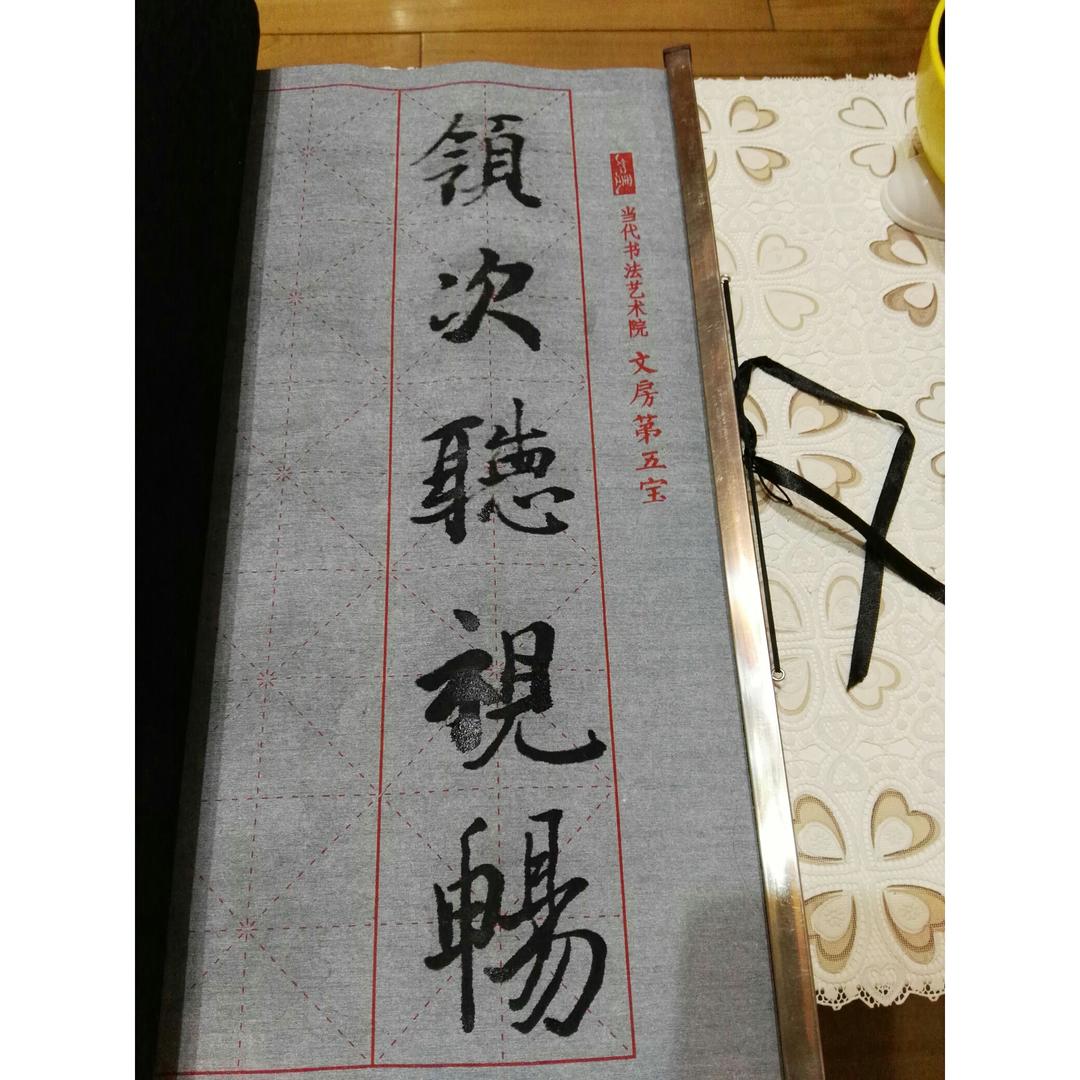 領次聽視暢
当代书法艺术院 文房第五宝